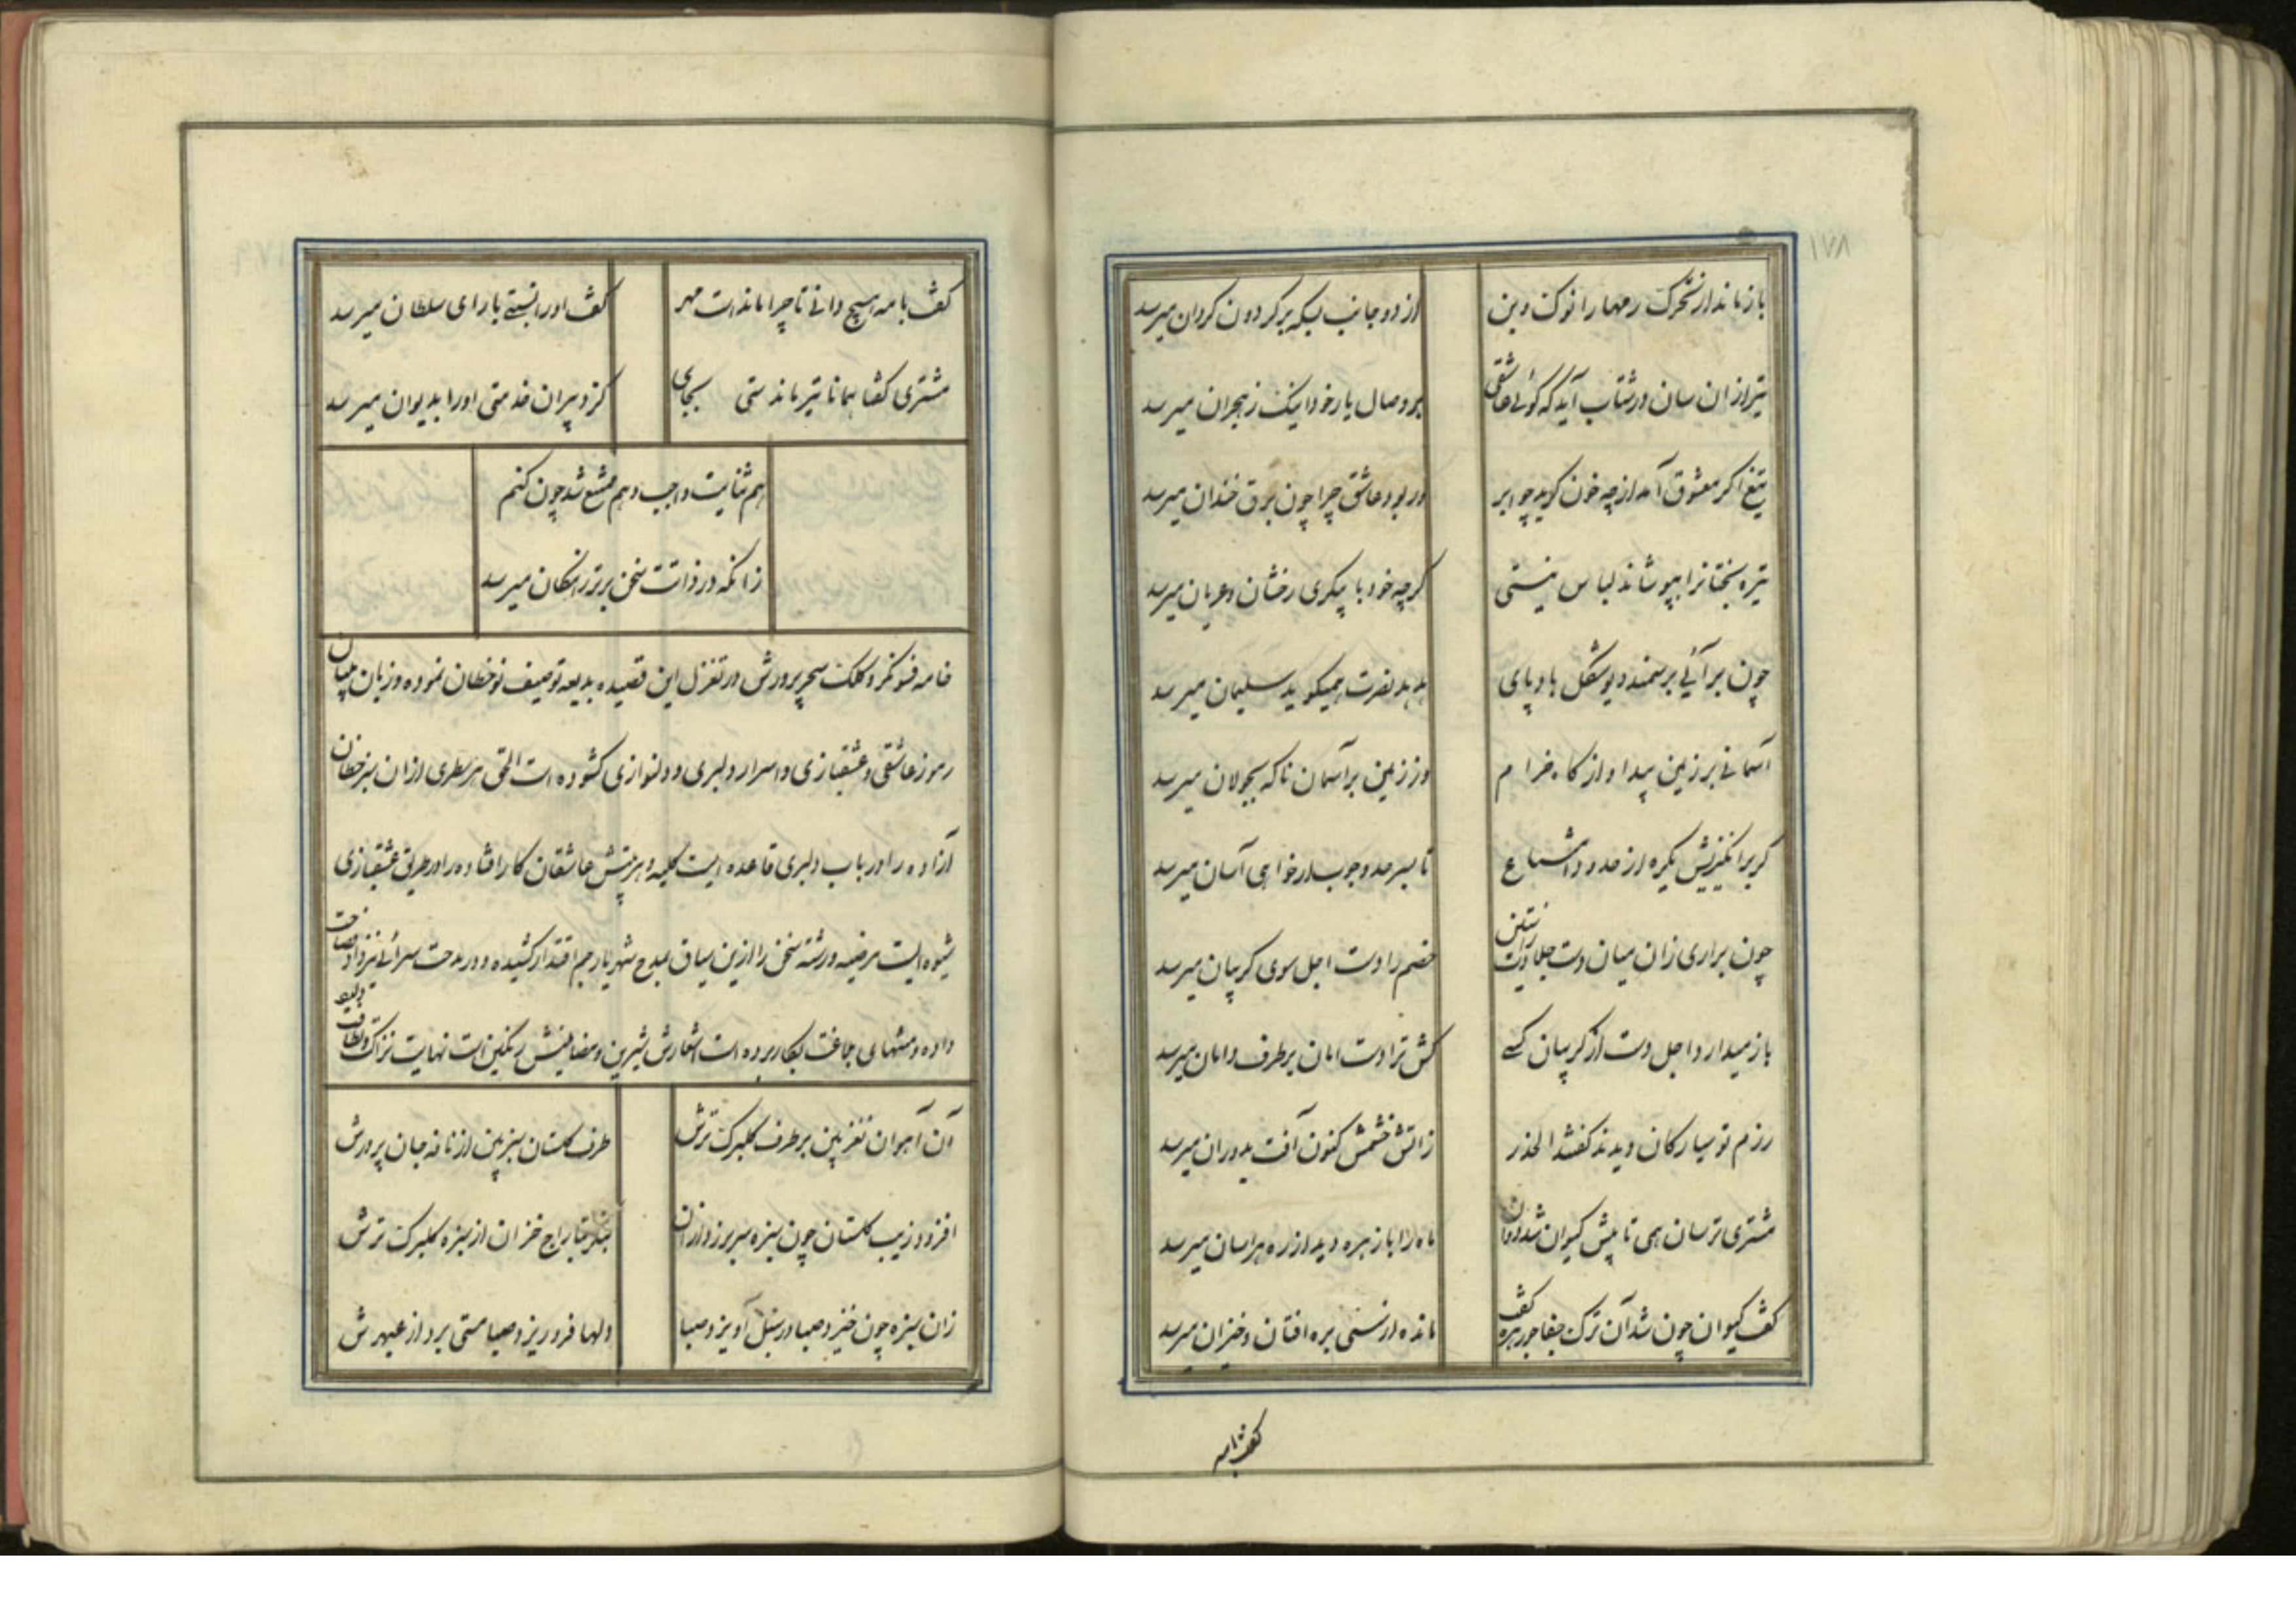 ۱۷۸
باز ماند از تحرک رمها را نوک وین
از دو جانب بسکه بر کردون کردان میرسد
تیر از ان سان در شتاب آید که کوئی عاشقی
بر وصال یار خود اینک ز هجران میرسد
تیغ اکر معشوق آمد از چه خون کرید چو ابر
ور بود عاشق چرا چون برق خندان میرسد
تیره بختانرا بپوشاند لباس نیستی
کرچه خود با پیکری رخشان و عریان میرسد
چون برآئی بر سمند دیو شکل باد پای
هدهد نصرت همیکوید سلیمان میرسد
آسمانی بر زمین پیدا و از کاه خرام
وز زمین بر آسمان ناکه بجولان میرسد
کر برانکیزیش یکره از حدود امتناع
تا بسر حد وجوب ار خواهی آسان میرسد
چون براری زان میان دست جلادت ز آستین
خصم را دست اجل سوی کریبان میرسد
باز میدارد اجل دست از کریبان کسی
کش ترا دست امان بر طرف دامان میرسد
رزم تو سیارکان دیدند کفتند الحذر
زاتش خشمش کنون آفت بدوران میرسد
مشتری ترسان همی تا پیش کیوان شد دوان
ماه را با زهره دید از ره هراسان میرسد
کفت کیوان چون شد آن ترک جفاجو زهره کفت
مانده از سستی بره افتان و خیزان میرسد
کفت با مه
کفت با مه هیچ دانی تا چرا ماندست مهر
کفت او را نسبتی با رای سلطان میرسد
مشتری کفتا همانا تیر ماندستی بجای
کز دبیران خدمتی او را بدیوان میرسد
هم ثنایت واجب و هم ممتنع شد چون کنم
زانکه در ذاتت سخن برتر ز امکان میرسد
خامه فسونکر و کلک سحرپرورش در تغزل این قصیده بدیعه توصیف نوخطان نموده و زبان ببیان
رموز عاشقی و عشقبازی و اسرار دلبری و دلنوازی کشوده است الحق هر سطری از ان سبز خطان
آزاده را در باب دلبری قاعده ایست کلیه و هر بیتش عاشقان کار افتاده را در طریق عشقبازی
شیوه ایست مرضیه و رشته سخن را ازین سیاق بمدح شهریار جم اقتدار کشیده و در مدحت سرائی نیز داد فصاحت
داده و منتهای بلاغت بکار برده است اشعارش شیرین و مضامینش رنکین است نهایت نزاکت و لطافت
آن آهوان نغز بین بر طرف کلبرک ترش
طرف کلستان سبز بین از نافه جان پرورش
افزود زیب کلستان چون سبزه سر برزد از ان
بنکر بتاراج خزان از سبزه کلبرک ترش
زان سبزه چون خیزد صبا در سنبل آویزد صبا
دلها فرو ریزد صبا مستی برد از عبهرش